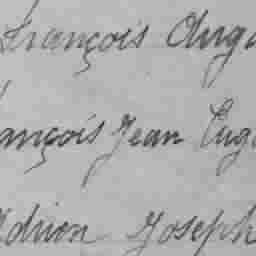 François Aug
ançois Jean Eug
Adrien Joseph